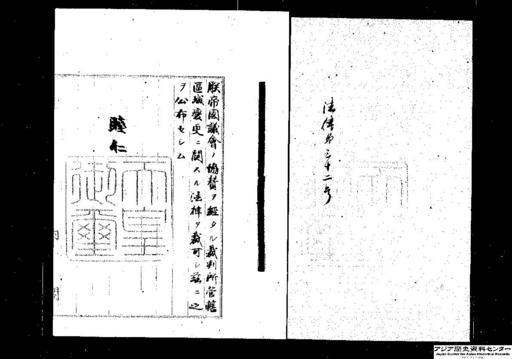 法律第三十二号
朕帝國議會ノ協賛ヲ經タル裁判所管轄
區域變更ニ關スル法律ヲ裁可シ茲ニ之
ヲ公布セシム
睦仁
天皇
御璽
アジア歴史資料センター
Japan Center for Asian Historical Records